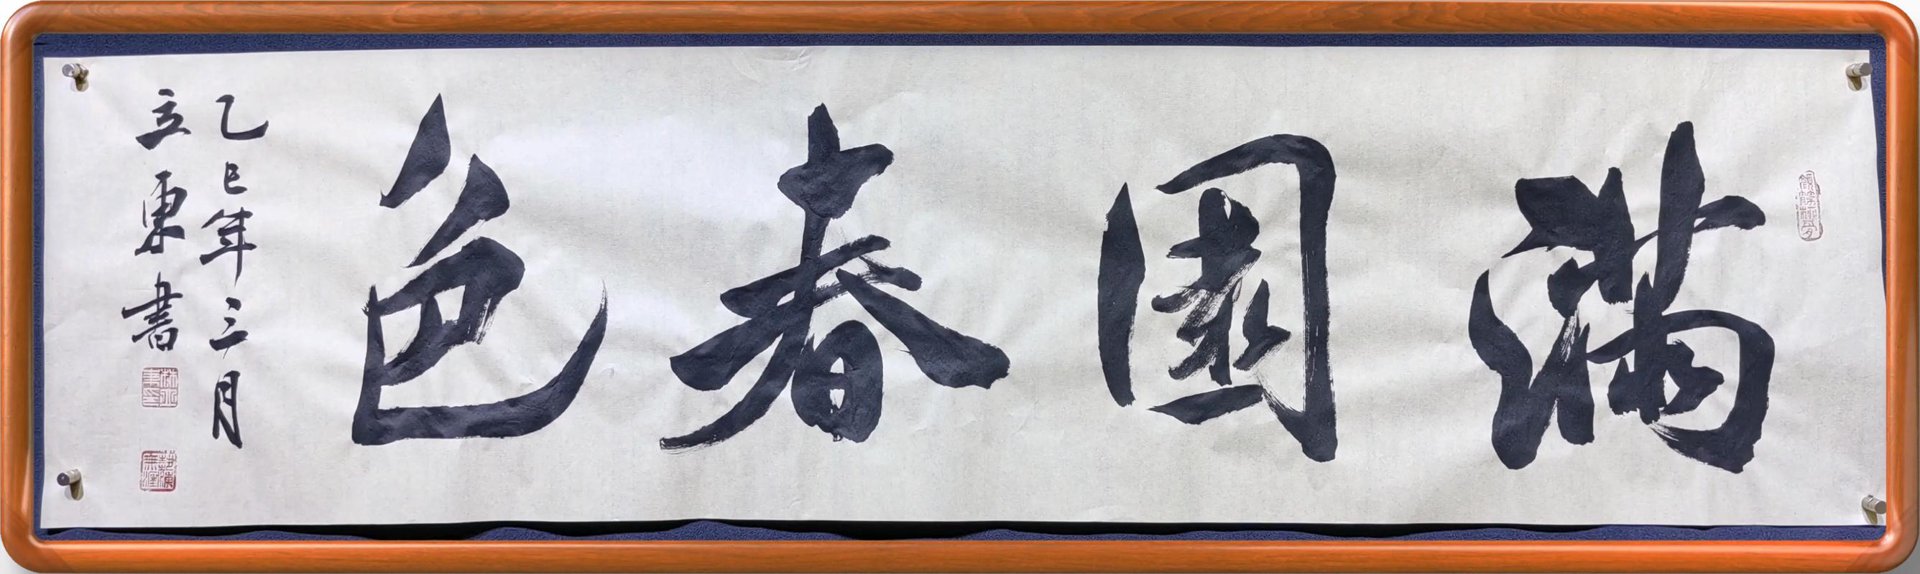 满園春色
乙巳年三月
立東書